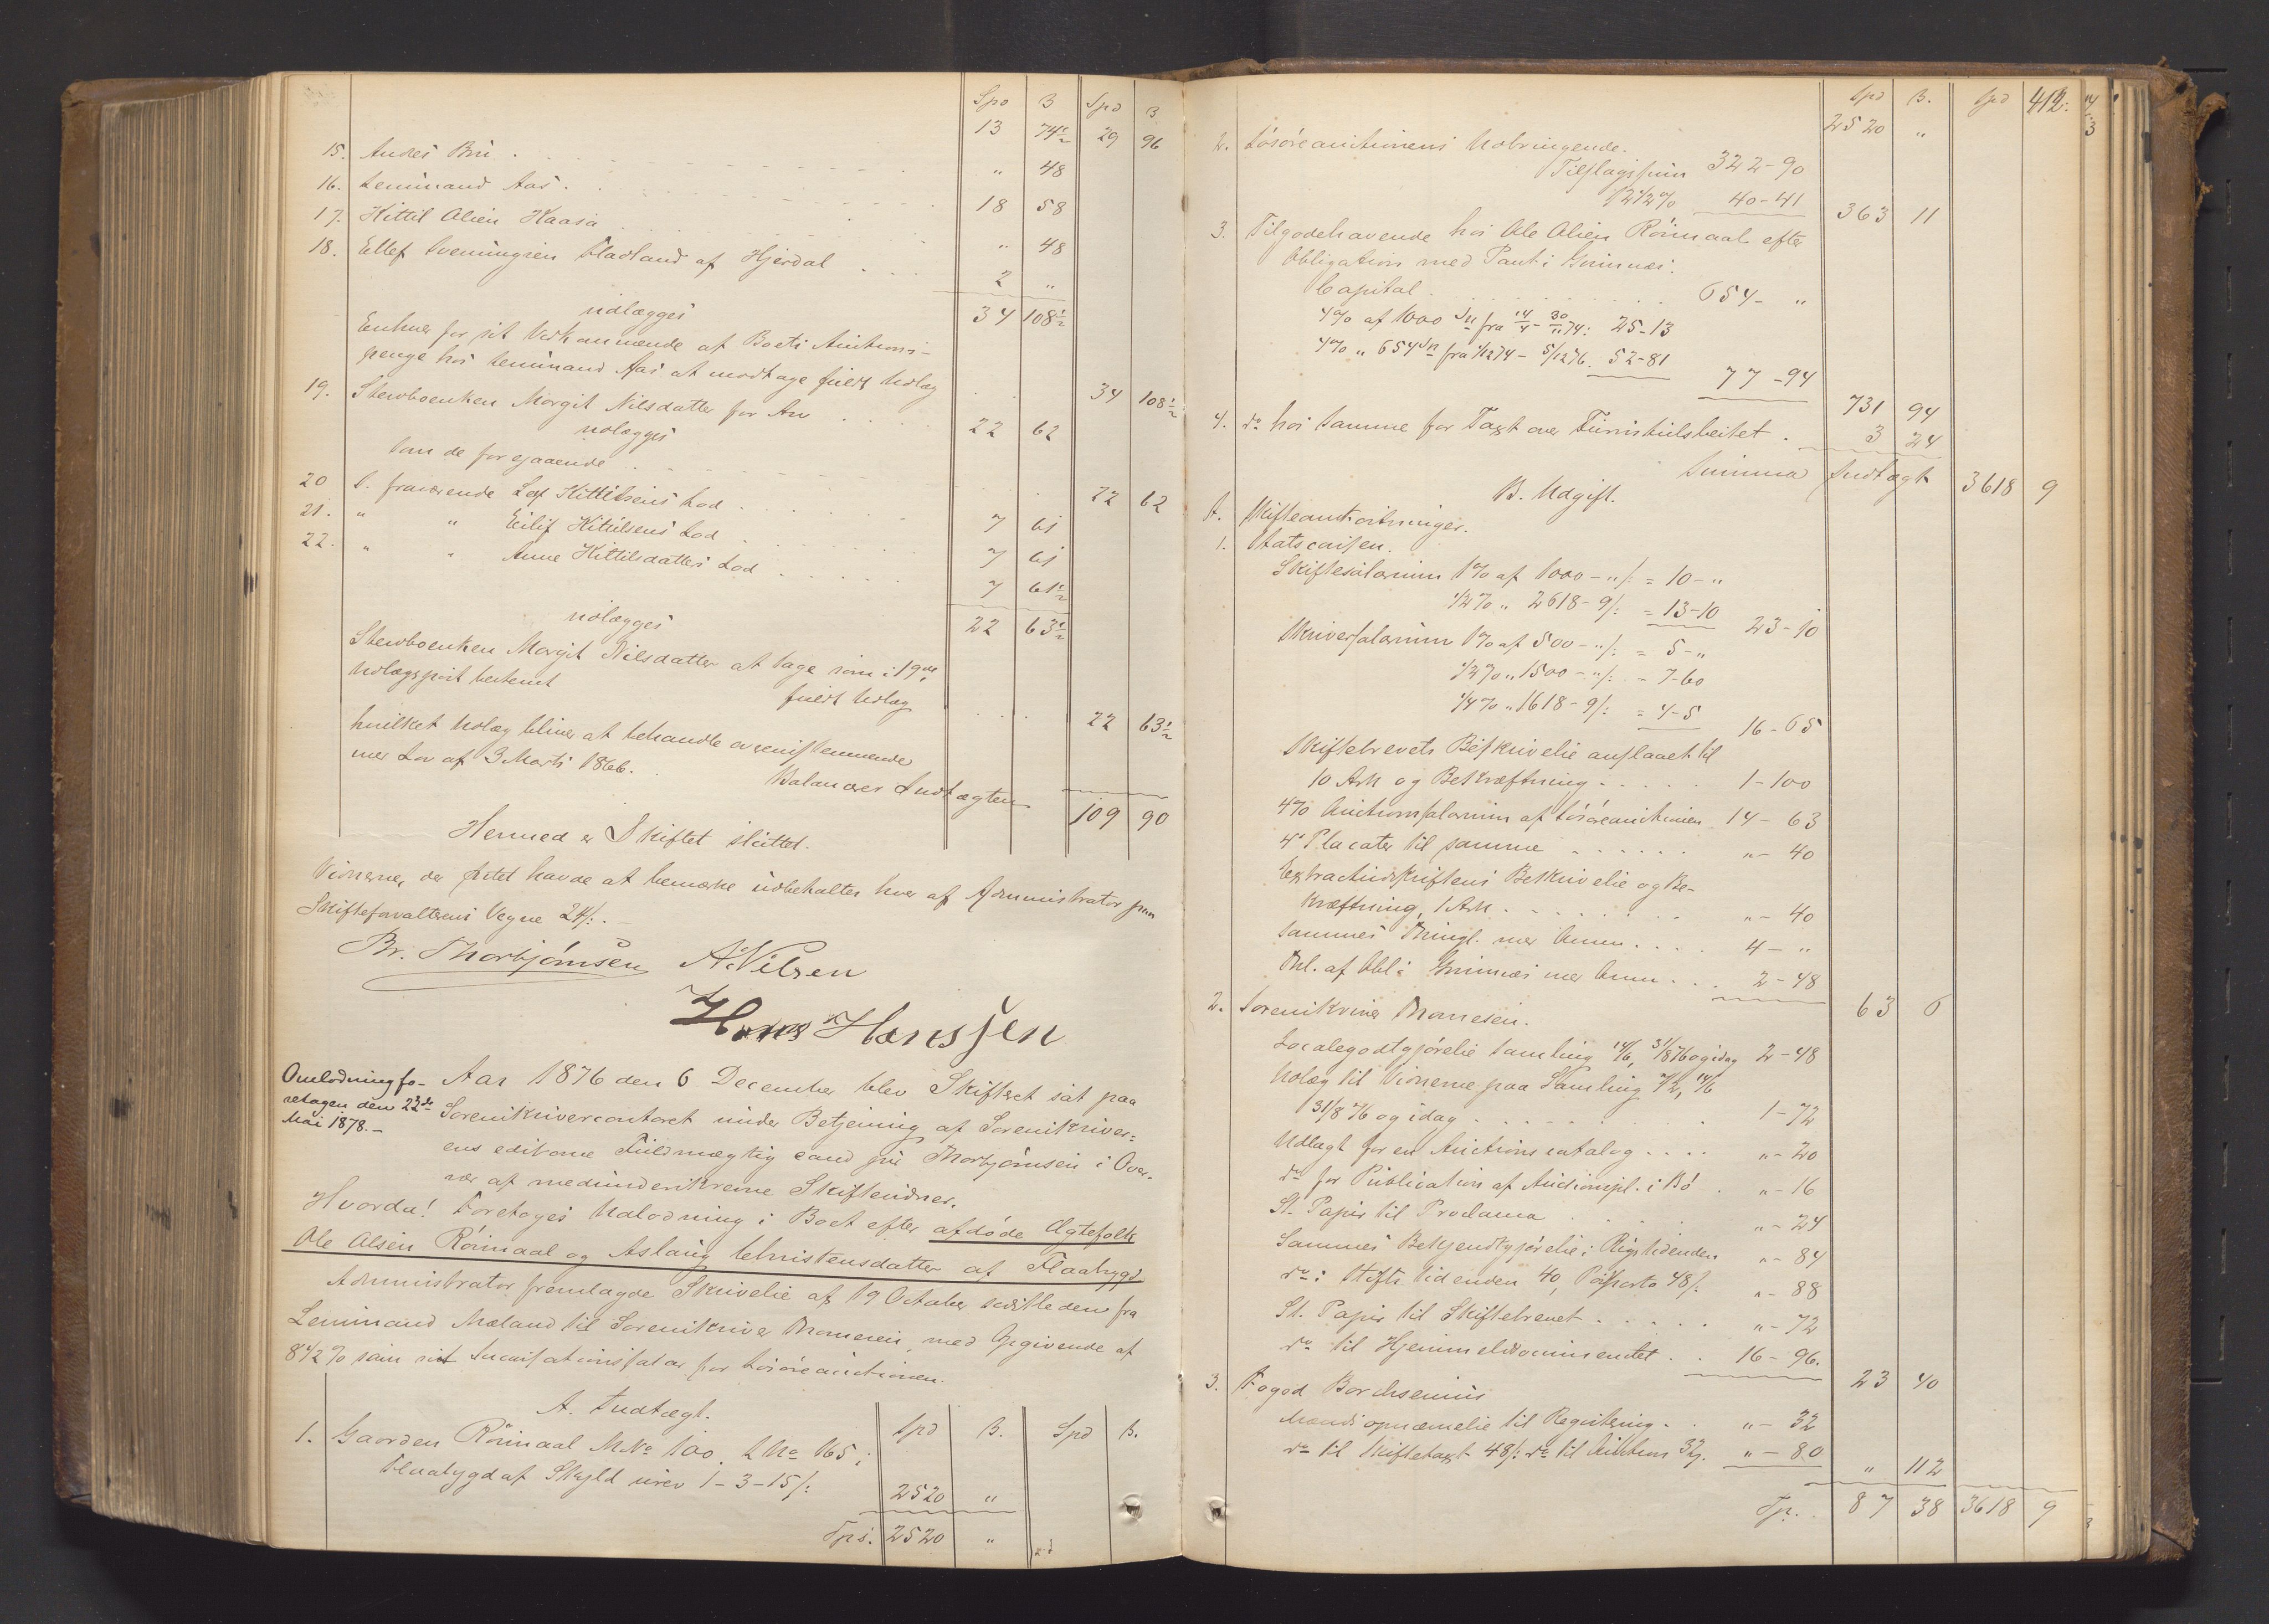 Spd ß Spd ß
13 74½ 29 96
15. Anders Bru . " 48
16. Leuinand Aas . 18 58
17. Kittil Olsen Haasa " 48
18. Ellef Sveningsen Fladland af Hjerdal 2 "
udlægges 34 108½
Enhver for sit Vedkommende af Boets Auctions-
penge hos Leuinand Aas at modtage fuldt Udlæg 34 108½
19. Stervboenken Margit Nilsdatter for Arv 22 62
udlægges
som de foregaaende 22 62
20 D. fraværende Lef Kittilsens Lod 7 61
21. " " Eilif Kittilsens Lod 7 61
22. " " Anne Kittilsdatters Lod 7 61½
udlægges 22 63½
Stervboenken Margit Nilsdatter at tage som i 19de
Udlægspost bestemt fuldt Udlæg 22 63½
hvilket Udlæg bliver at behandle overensstemmende
med Lov af 3 Marts 1866.
Balancerer Indtægten 109 90
Hermed er Skiftet sluttet.
Vidnerne, der Intet havde at bemærke udbetaltes hver af Administrator paa
Skifteforvalterens Vegne 24ß. –
Br. Thorbjørnsen A Nilsen
Hans Hanssen
Omlodning fo-
retagen den 22de
Mai 1878. –
Aar 1876 den 6 December blev Skifteret sat paa
Sorenskrivercontoret under Betjening af Sorenskriver-
ens edsvorne Fuldmægtig cand jur Thorbjørnsen i Over-
vær af medunderskrevne Skiftevidner.
Hvorda! Foretoges Udlodning i Boet efter afdøde Ægtefolk
Ole Olsen Rönnaal og Aslaug Christensdatter af Flaabygd
Administrator fremlagde Skrivelse af 19 October sidstleden fra
Leuinand Mæland til Sorenskriver Thomesen, med Opgivende af
8 1/2 % som sit Incassationssalær for Løsøreauctionen.
A. Indtægt. Spd ß. Spd ß.
1. Gaarden Rönnaal M No 100, L No 165 i
Flaabygd af Skyld urev 1-3-15ß: 2520 "
Tps. 2520 "
Spd ß. Spd 412.
2520 "
2. Løsøreauctionens Udbringende.
Tilslagssum 322-90
12 1/2 % 40-41 363 11
3. Tilgodehavende hos Ole Olsen Rönnaal efter
Obligation med Pant i Grimnæs.
Capital 654- "
4% af 1000 Spd fra 14/4 - 30/11 74: 25-13
4% " 654 Spd fra 1/12 74 - 5/12 76. 52-81
77-94 731 94
4. do hos Samme for Taxt over 3 24
Summa Indtægt 3618 9
B. Udgift.
A. Skifteomkostninger.
1. Statscassen.
Skiftesalarium 1% af 1000-"ß: = 10-"
1/2% " 2618-9ß: = 13-10 23-10
Skriversalarium 1% af 500-"ß: = 5-"
1/2% " 1500-"ß: = 7-60
1/4% " 1618-9ß: = 4-5 16-65
Skiftebrevets Beskrivelse anslaaet til
10 Ark og Bekræftning 1-100
4% Auctionssalarium af Løsøreauctionen 14-63
4 Placater til samme "-40
Extractudskriftens Beskrivelse og Be-
kræftning, 1 Ark "-40
Sammes Thingl. med Anm. 4-"
Thl. af Obl i Grimnæs med Anm. 2-48
63 6
2. Sorenskriver Thomesen.
Localegodtgjørelse Samling 14/6, 31/8 76 og idag 2-48
Udlæg til Vidnerne paa Samling 7/2, 14/6
31/8 76 og idag 1-72
Udlagt for en Auctionscatalog "-20
do for Publication af Auctionspl. i Bö "-16
St. Papir til Proclama "-24
Sammes Bekjendtgjørelse i Rigstidenden "-84
do i Stifts tidenden 40, Postporto 48ß. "-88
St. Papir til Skiftebrevet "-72
do til Hjemmelsdocumentet 16-96.
23 40
3. Foged Borchsenius
Mænds opnævnelse til Registrering "-32
do til Skiftetaxt 48ß: do til Auction 32ß. "-80
" 112
Tp. 87 38 3618 9